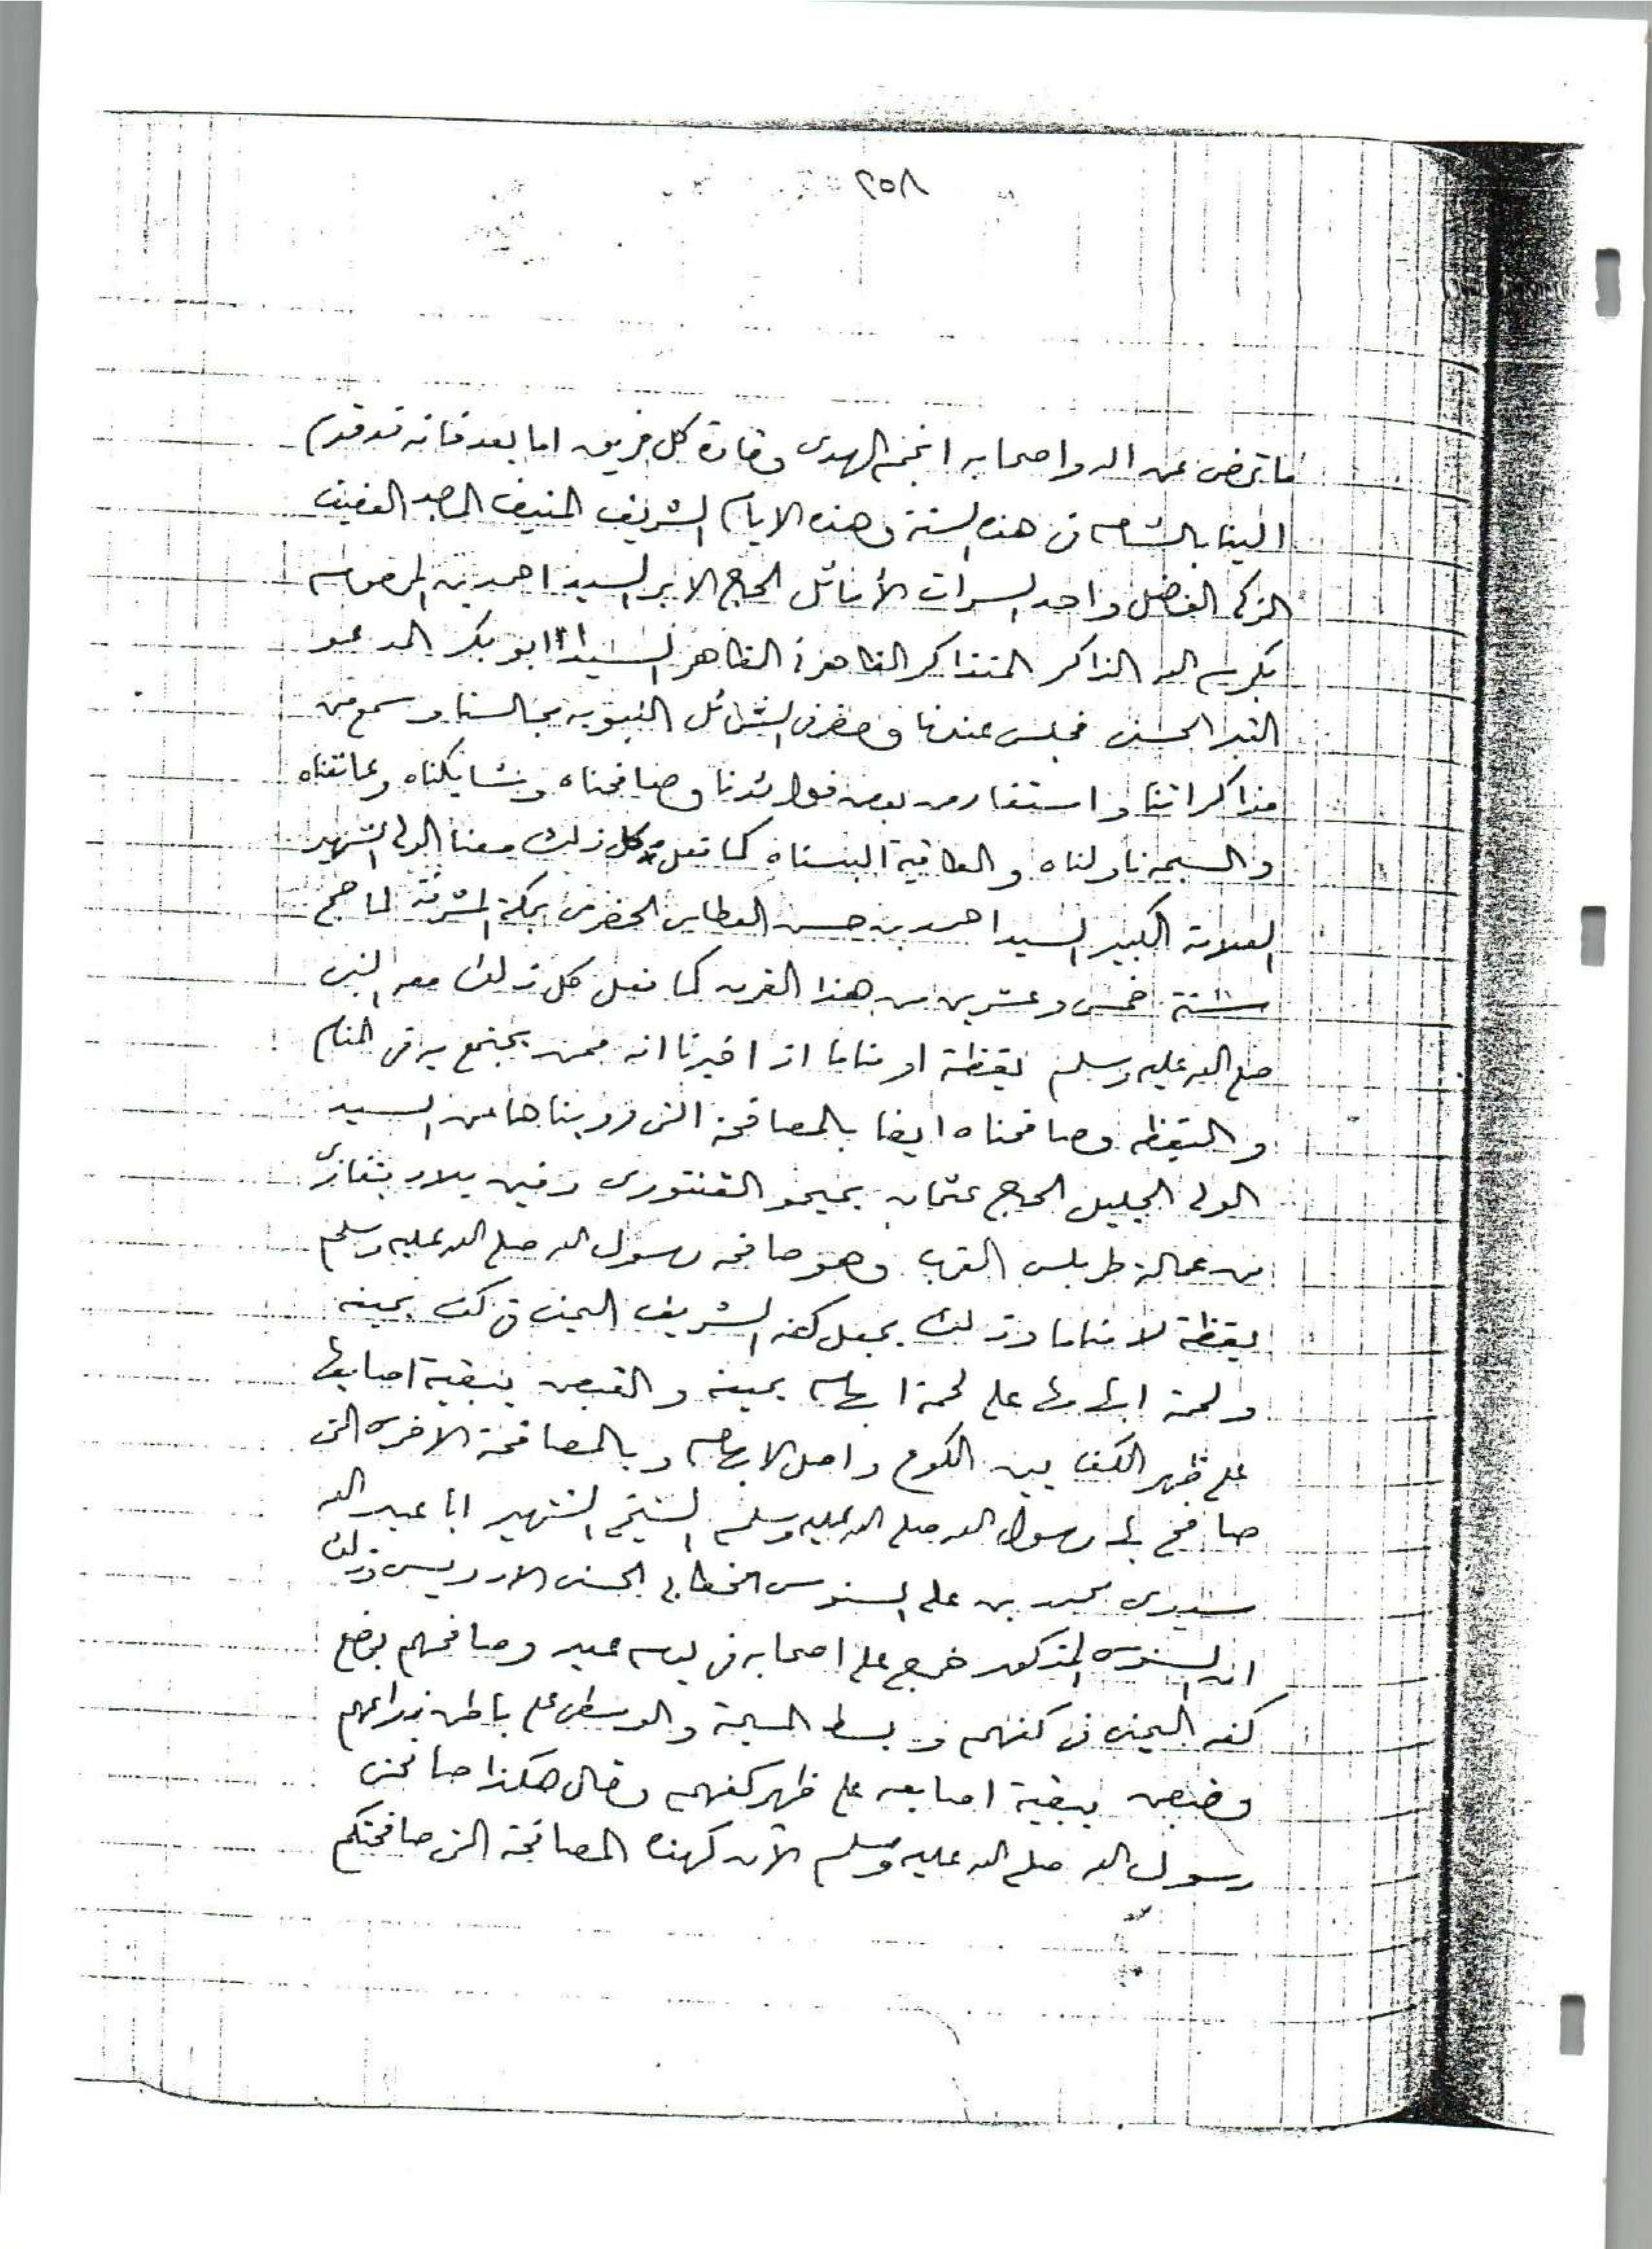 ٢٥٨
ما ترض عن اله واصحابه انجم الهدى وقادة كل فريق اما بعد فانه قد قدم
الينا بالشام فى هذه السنة وهذه الايام الشريف المنيف العفيف
الزكى الفاضل واحد السرات الأماثل الحاج الابر السيد احمد بن المرحوم
بكرم الله الذاكر المتذاكر الطاهر السيد ابو بكر المدعو
الحسنى فجلس عندنا وحضر فى الشمائل النبويه مجالسنا وسمع من
مذاكراتنا واستفاد من بعض فوائدنا وصافحناه وشابكناه وعانقناه
والسبحه ناولناه والطاقية البسناه كما فعل كل ذلك معنا الولى الشهير
العلامة الكبير السيد احمد بن حسن العطاس الحضرمى بمكة المشرفة لما حج
سنة خمس وعشرين من هذا القرن كما فعل كل ذلك معه النبى
صلى الله عليه وسلم يقظة او مناما اذ اخبرنا انه ممن يجتمع به فى المنام
واليقظه وصافحناه ايضا بالمصافحة التى رويناها عن السيد
الولى الجليل الحاج عثمان دفين بلاد بنغازى
من عمالة طربلس الغرب وهو صافحه رسول الله صلى الله عليه وسلم
يقظة لا مناما وذلك بجعل كفه الشريف اليمنى فى كف يمينه
ولحمة ابهامها على لحمة ابهام يمينه والقبض ببقية اصابعها
على ظهر الكف بين الكوع واصل الابهام وبالمصافحة الاخرى التى
صافح بها رسول الله صلى الله عليه وسلم الشيخ الشهير ابا عبد الله
سيدى محمد بن على السنوسى الخطابى الحسنى الادريسى وذلك
ان السنوسى المذكور خرج على اصحابه فى يوم عيد وصافحهم بوضع
كفه اليمنى فى كفهم وبسط المسبحة والوسطى على باطن ذراعهم
وقبض ببقية اصابعه على ظهر كفهم وقال هكذا صافحنى
رسول الله صلى الله عليه وسلم الآن كهذه المصافحة التى صافحتكم